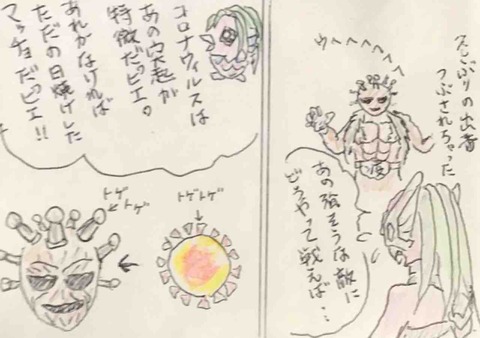 久しぶりの出番
つぶされちゃった
ウヘヘヘヘヘ
疫
あの強そうな敵に
どうやって戦えば…
コロナウィルスは
あの突起が
特徴だッピエ。
あれがなければ
ただの日焼けした
マッチョだッピエ!!
トゲトゲ
トゲ
トゲ